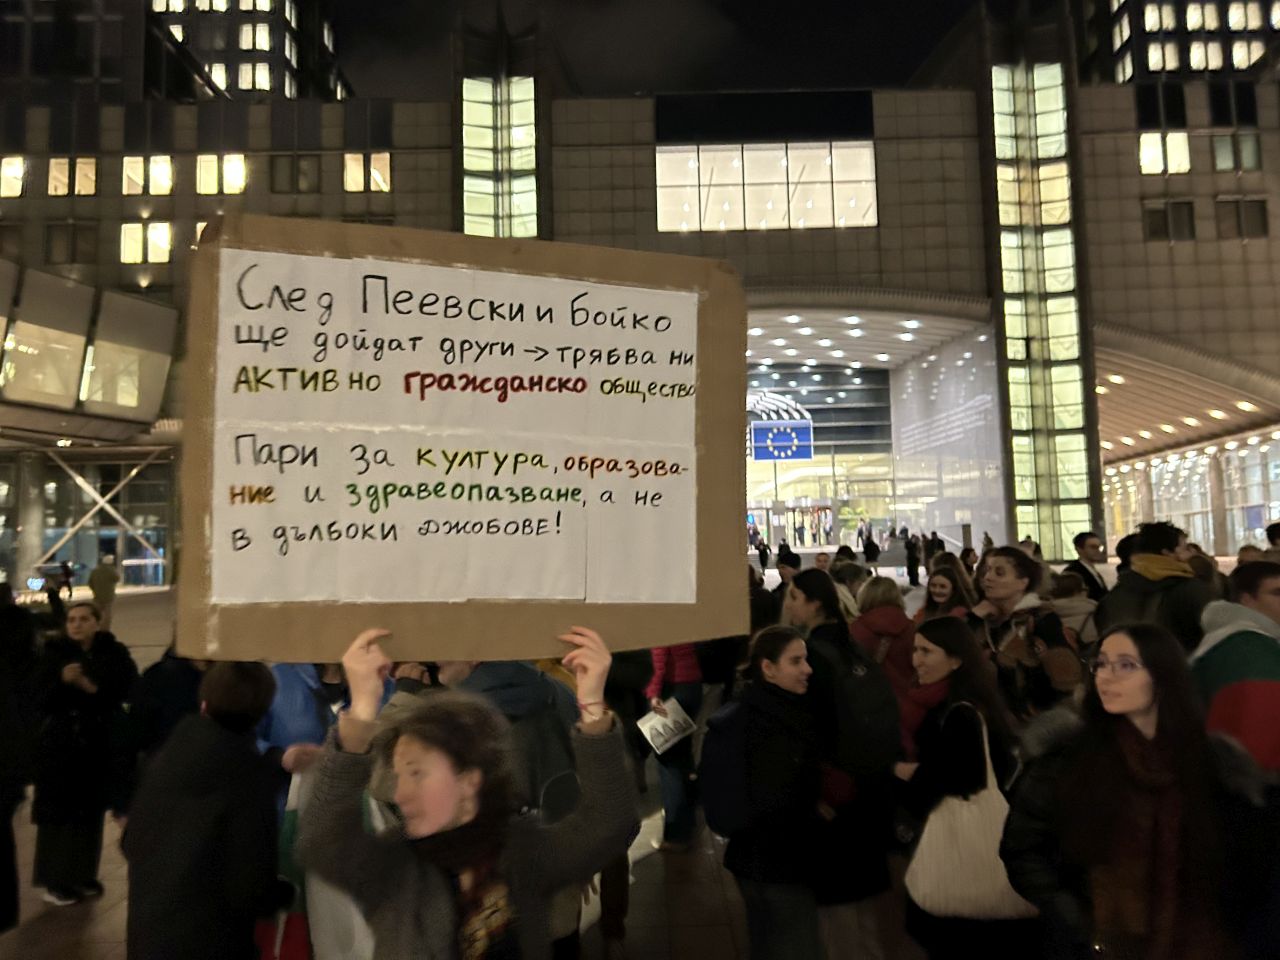 След Пеевски и Бойко
ще дойдат други → трябва ни
АКТИВНО гражданско общество
Пари за култура, образова-
ние и здравеопазване, а не
в дълбоки джобове!